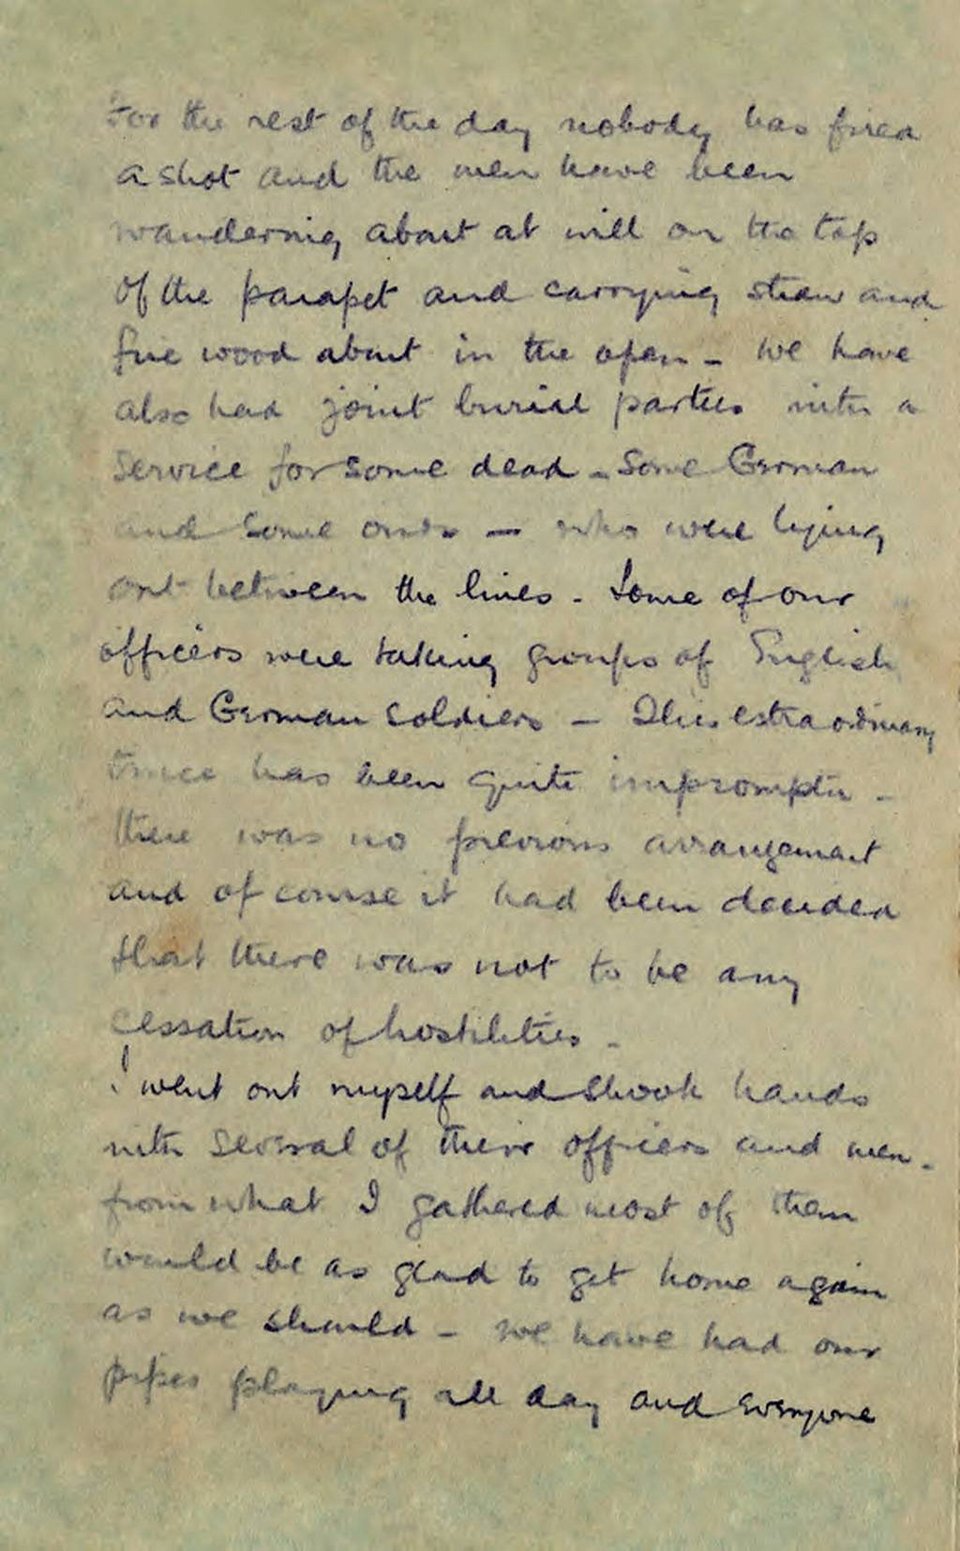 For the rest of the day nobody has fired
a shot and the men have been
wandering about at will on the top
of the parapet and carrying straw and
fire wood about in the open - We have
also had joint burial parties with a
service for some dead - some German
and some ours - who were lying
out between the lines - Some of our
officers were taking groups of English
and German soldiers - This extraordinary
truce has been quite impromptu -
there was no previous arrangement
and of course it had been decided
that there was not to be any
cessation of hostilities -
I went out myself and shook hands
with several of their officers and men -
from what I gathered most of them
would be as glad to get home again
as we should - We have had our
pipes playing all day and everyone